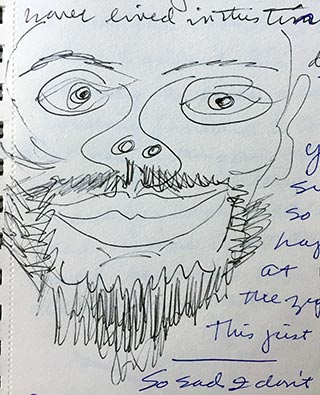 never lived in this tim
d
y
su
so
hap
at
the zy
This just
So sad I don't